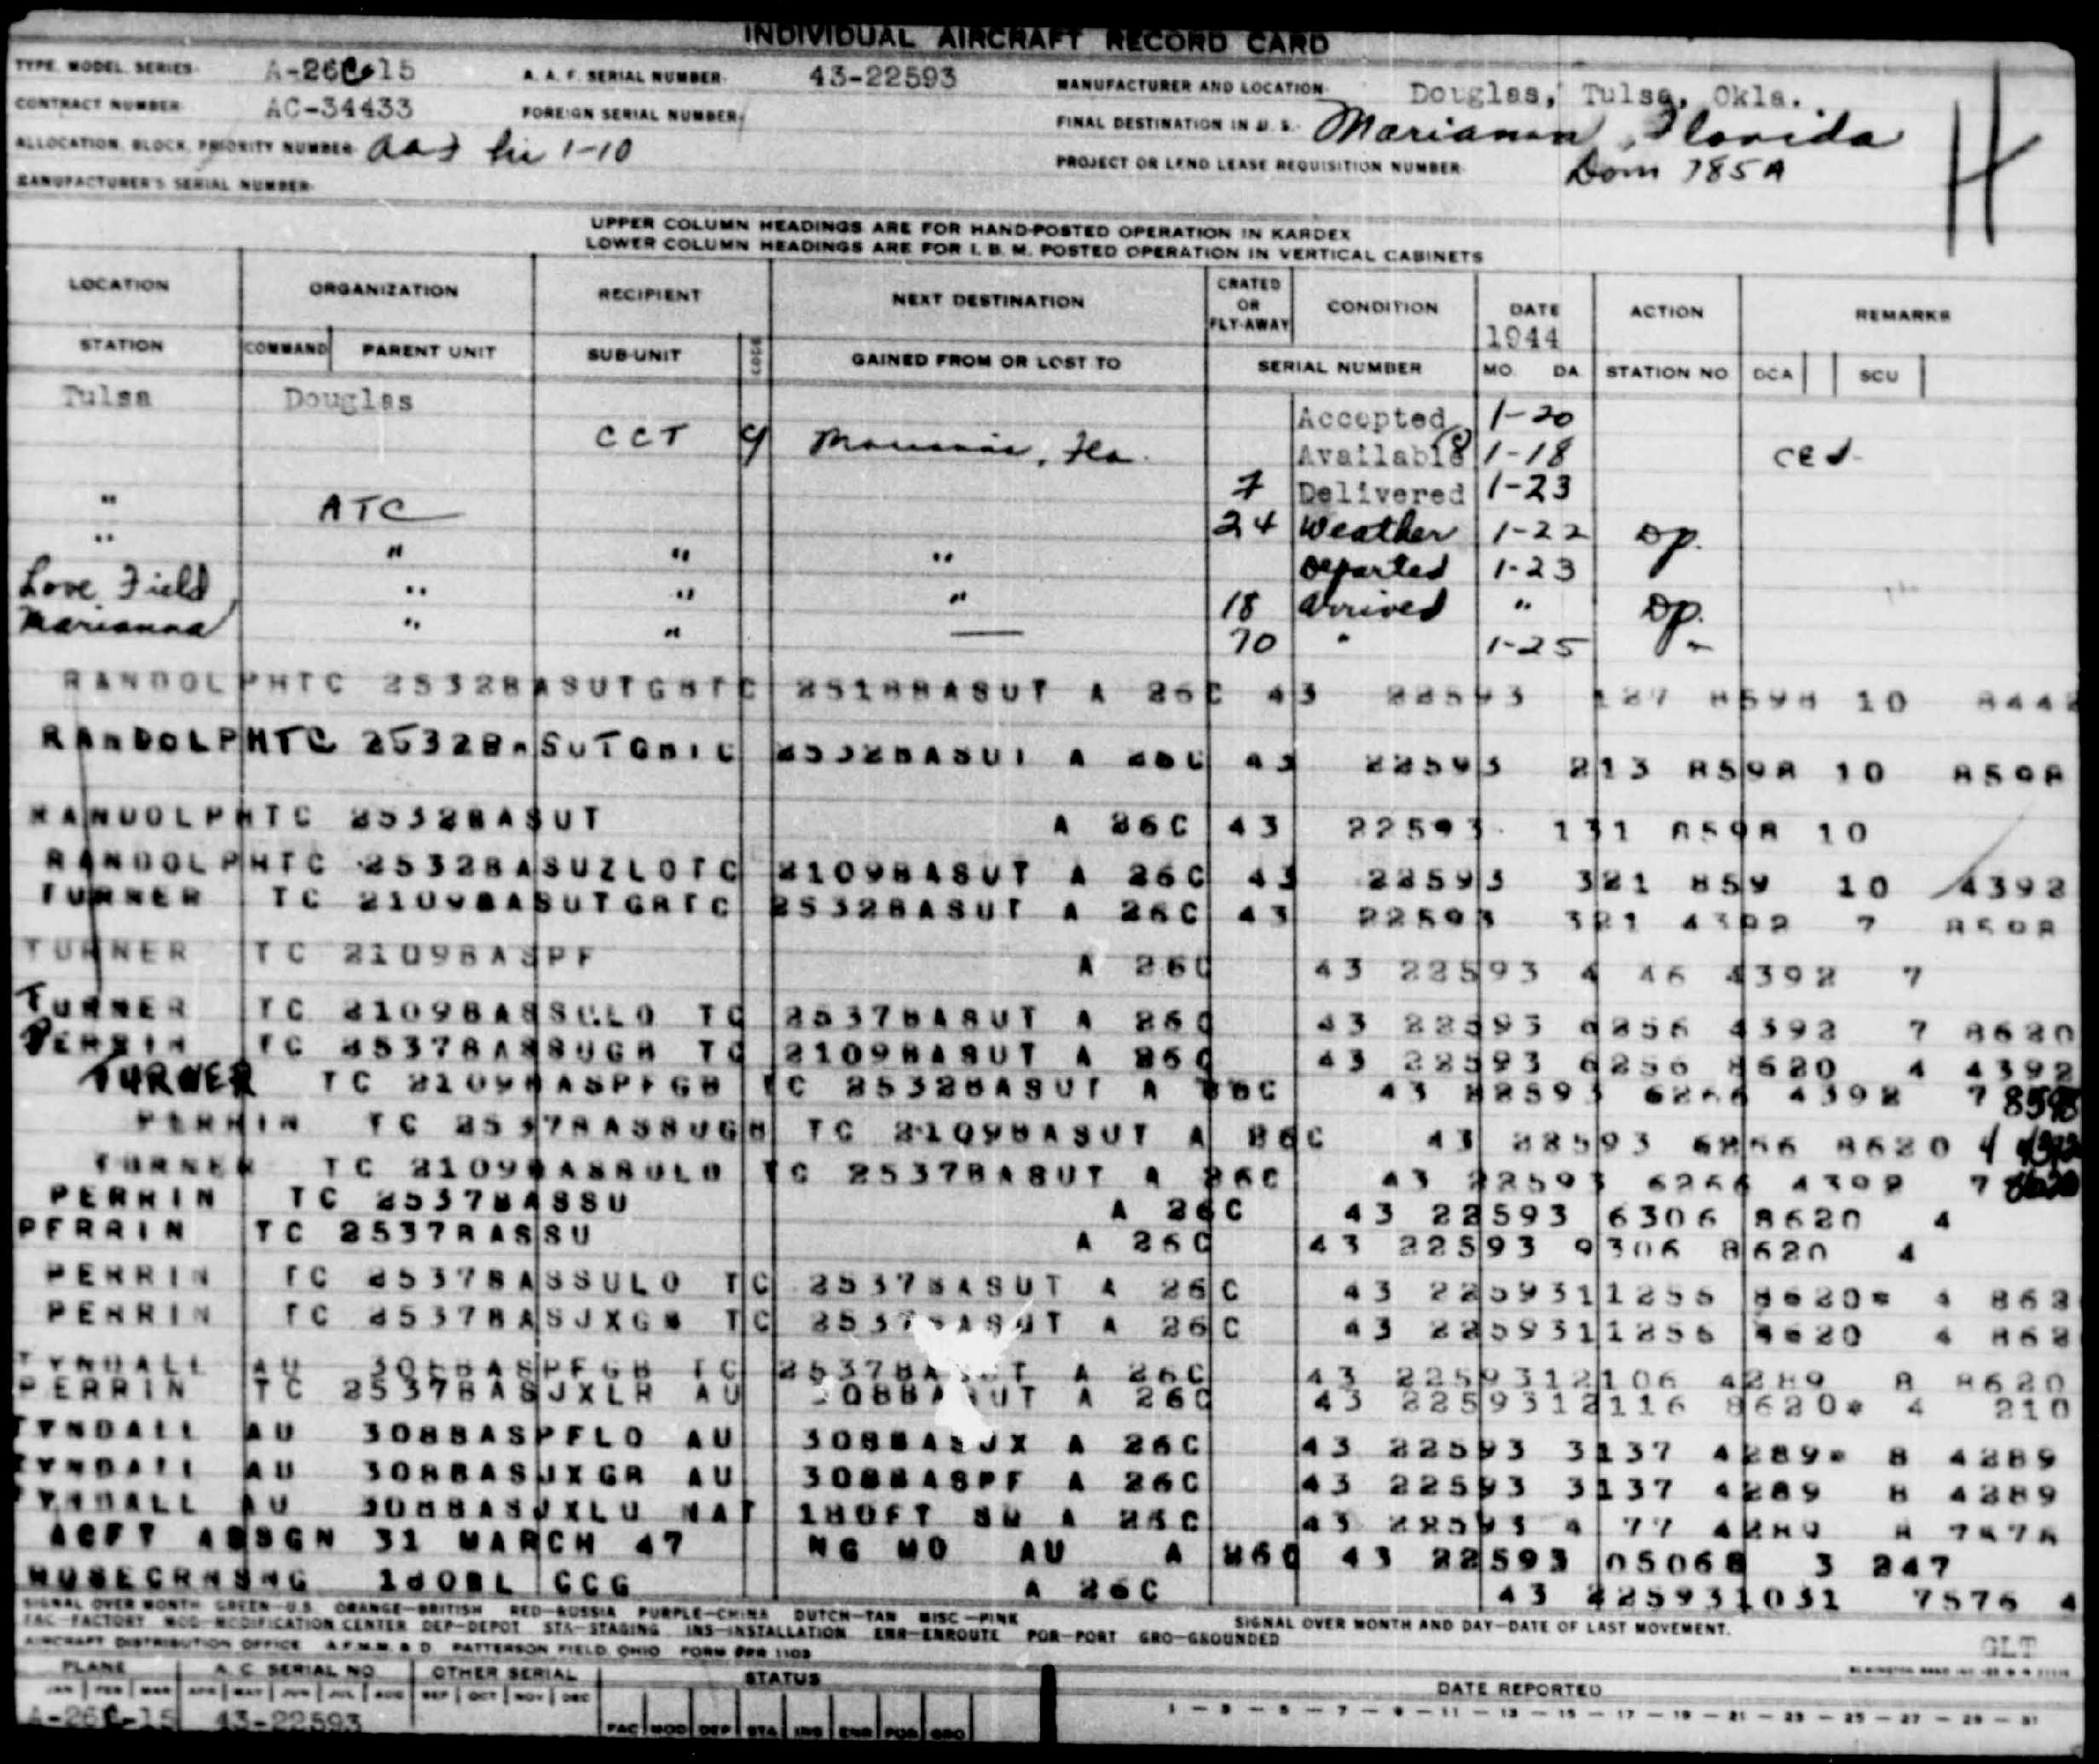 INDIVIDUAL AIRCRAFT RECORD CARD
TYPE, MODEL, SERIES A-26C-15 A. A. F. SERIAL NUMBER 43-22593 MANUFACTURER AND LOCATION Douglas, Tulsa, Okla.
CONTRACT NUMBER AC-34433 FOREIGN SERIAL NUMBER FINAL DESTINATION IN U. S. Marianna, Florida
ALLOCATION, BLOCK, PRIORITY NUMBER 1-10 PROJECT OR LEND LEASE REQUISITION NUMBER Dom 785A
MANUFACTURER'S SERIAL NUMBER
H
UPPER COLUMN HEADINGS ARE FOR HAND-POSTED OPERATION IN KARDEX
LOWER COLUMN HEADINGS ARE FOR I. B. M. POSTED OPERATION IN VERTICAL CABINETS
LOCATION ORGANIZATION RECIPIENT NEXT DESTINATION CRATED OR FLY-AWAY CONDITION DATE ACTION REMARKS
1944
STATION COMMAND PARENT UNIT SUB-UNIT GAINED FROM OR LOST TO SERIAL NUMBER MO. DA. STATION NO DCA SCU
Tulsa Douglas Accepted 1-20
CCT Marianna, Fla. Available 1-18
" ATC 7 Delivered 1-23
" " " " 24 Weather 1-22 Dp.
" " " Departed 1-23
Love Field " " " 18 Arrived " Dp.
Marianna " " — 70 " 1-25
RANDOLPHTC 2532BASUTGBTC 2518BASUT A 26C 43 22593 127 8598 10 8442
RANDOLPHTC 2532BASUTGBTC 2532BASUT A 26C 43 22593 213 8598 10 8598
RANDOLPHTC 2532BASUT A 26C 43 22593 131 8598 10
RANDOLPHTC 2532BASUZLOTC 2109BASUT A 26C 43 22593 321 859 10 4392
TURNER TC 2109BASUTGBTC 2532BASUT A 26C 43 22593 321 4392 7 8598
TURNER TC 2109BASPF A 26C 43 22593 4 46 4392 7
TURNER TC 2109BASSULO TC 2537BASUT A 26C 43 22593 6256 4392 7 8620
PERRIN TC 2537BASSUGB TC 2109BASUT A 26C 43 22593 6256 8620 4 4392
TURNER TC 2109BASPFGB TC 2532BASUT A 26C 43 22593 6266 4392 7 8598
PERRIN TC 2537BASSUGB TC 2109BASUT A 26C 43 22593 6256 8620 4 4392
TURNER TC 2109BASSULO TC 2537BASUT A 26C 43 22593 6266 4392 7 8620
PERRIN TC 2537BASSU A 26C 43 22593 6306 8620 4
PERRIN TC 2537BASSU A 26C 43 22593 9306 8620 4
PERRIN TC 2537BASSULO TC 2537BASUT A 26C 43 2259311256 8620* 4 862
PERRIN TC 2537BASJXGB TC 2537BASUT A 26C 43 2259311256 8620 4 862
TYNDALL AU 308BASPFGB TC 2537BASUT A 26C 43 2259312106 4289 8 8620
PERRIN TC 2537BASJXLR AU 308BASUT A 26C 43 2259312116 8620* 4 210
TYNDALL AU 308BASPFLO AU 308BASJX A 26C 43 22593 3137 4289* 8 4289
TYNDALL AU 308BASJXGR AU 308BASPF A 26C 43 22593 3137 4289 8 4289
TYNDALL AU 308BASJXLO NAT 180FT A 26C 43 22593 4 77 4289 8 7576
ACFT ASSGN 31 MARCH 47 NG MO AU A 26C 43 22593 05068 3 247
180BL CCG A 26C 43 225931031 7576 4
SIGNAL OVER MONTH GREEN—U.S. ORANGE—BRITISH RED—RUSSIA PURPLE—CHINA DUTCH—TAN MISC—PINK
FAC-FACTORY MOD-MODIFICATION CENTER DEP-DEPOT STA-STAGING INS-INSTALLATION ENR-ENROUTE POR-PORT GRO-GROUNDED SIGNAL OVER MONTH AND DAY—DATE OF LAST MOVEMENT.
AIRCRAFT DISTRIBUTION OFFICE A.F.M.M. & D. PATTERSON FIELD, OHIO FORM 1103 GLT
PLANE A. C. SERIAL NO OTHER SERIAL STATUS DATE REPORTED
JAN FEB MAR APR MAY JUN JUL AUG SEP OCT NOV DEC
1 — 3 — 5 — 7 — 9 — 11 — 13 — 15 — 17 — 19 — 21 — 23 — 25 — 27 — 29 — 31
A-26C-15 43-22593 FAC MOD DEP STA INS ENR POR GRO